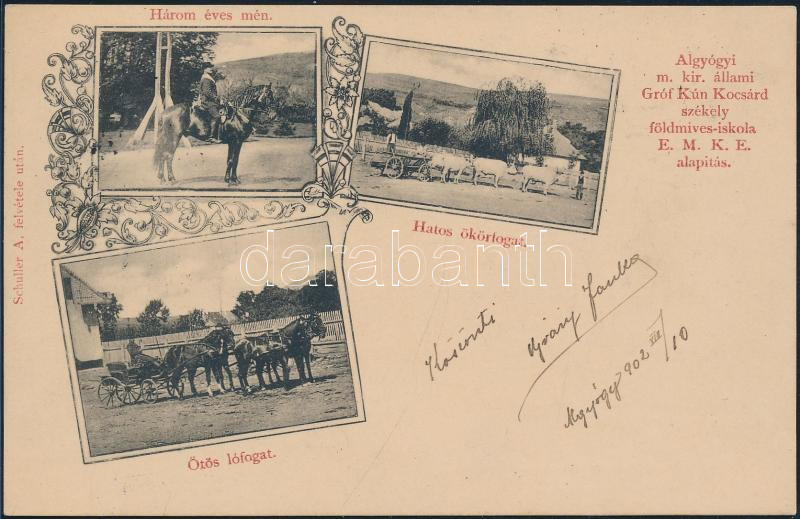 Három éves mén.
Algyógyi
m. kir. állami
Gróf Kún Kocsárd
székely
földmives-iskola
E. M. K. E.
alapitás.
Schuller A, felvétele után.
Hatos ökörfogat.
darabanth
Ötös lófogat.
Köszönti
Janka
Algyógy 902 VIII/10